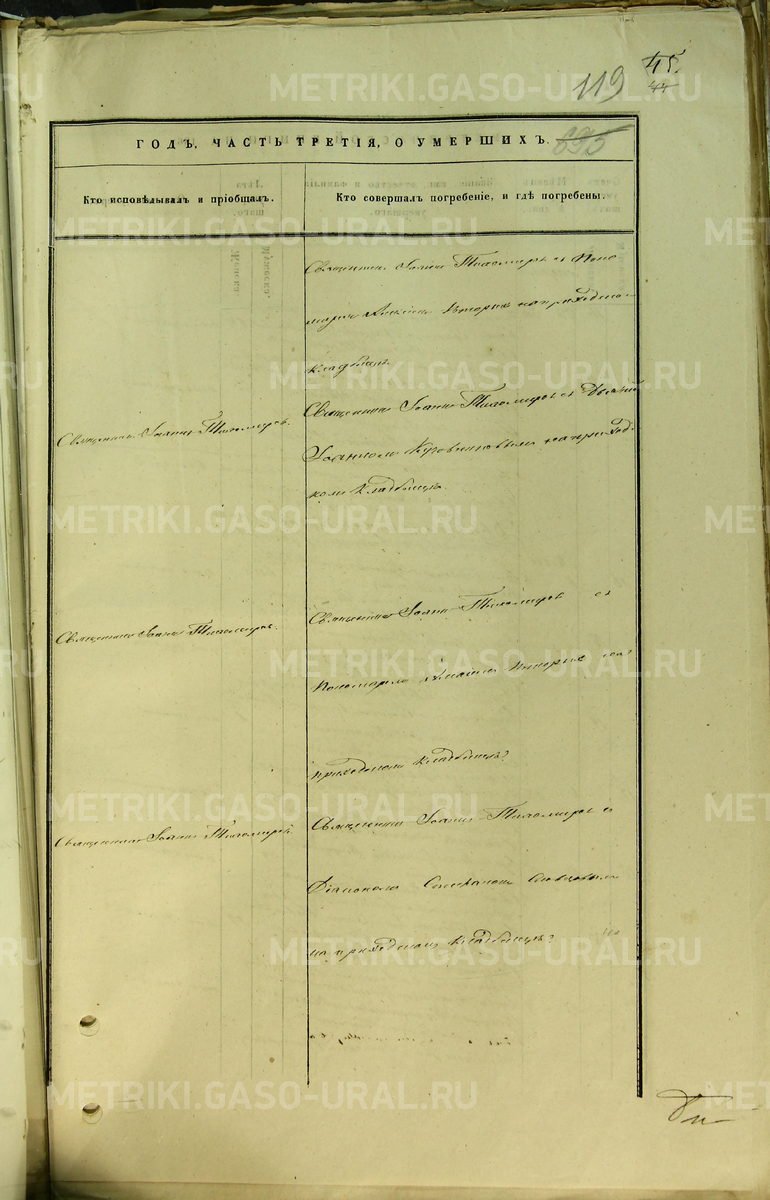 45.
44
119
695
ГОДЪ, ЧАСТЬ ТРЕТІЯ, О УМЕРШИХЪ.
Кто исповѣдывалъ и пріобщалъ.
Кто совершалъ погребеніе, и гдѣ погребены.
Священникъ Іоаннъ Тихомировъ съ Поно
маремъ на приходскомъ
кладбищѣ
Священникъ Іоаннъ Тихомировъ.
Священникъ Іоаннъ Тихомировъ съ
Іоанномъ на приход
комъ кладбищѣ.
Священникъ Іоаннъ Тихомировъ.
Священникъ Іоаннъ Тихомировъ съ
Пономаремъ на
приходскомъ кладбищѣ
Священникъ Іоаннъ Тихомировъ.
Священникъ Іоаннъ Тихомировъ съ
Діакономъ Стефаномъ
на приходскомъ кладбищѣ
METRIKI.GASO-URAL.RU